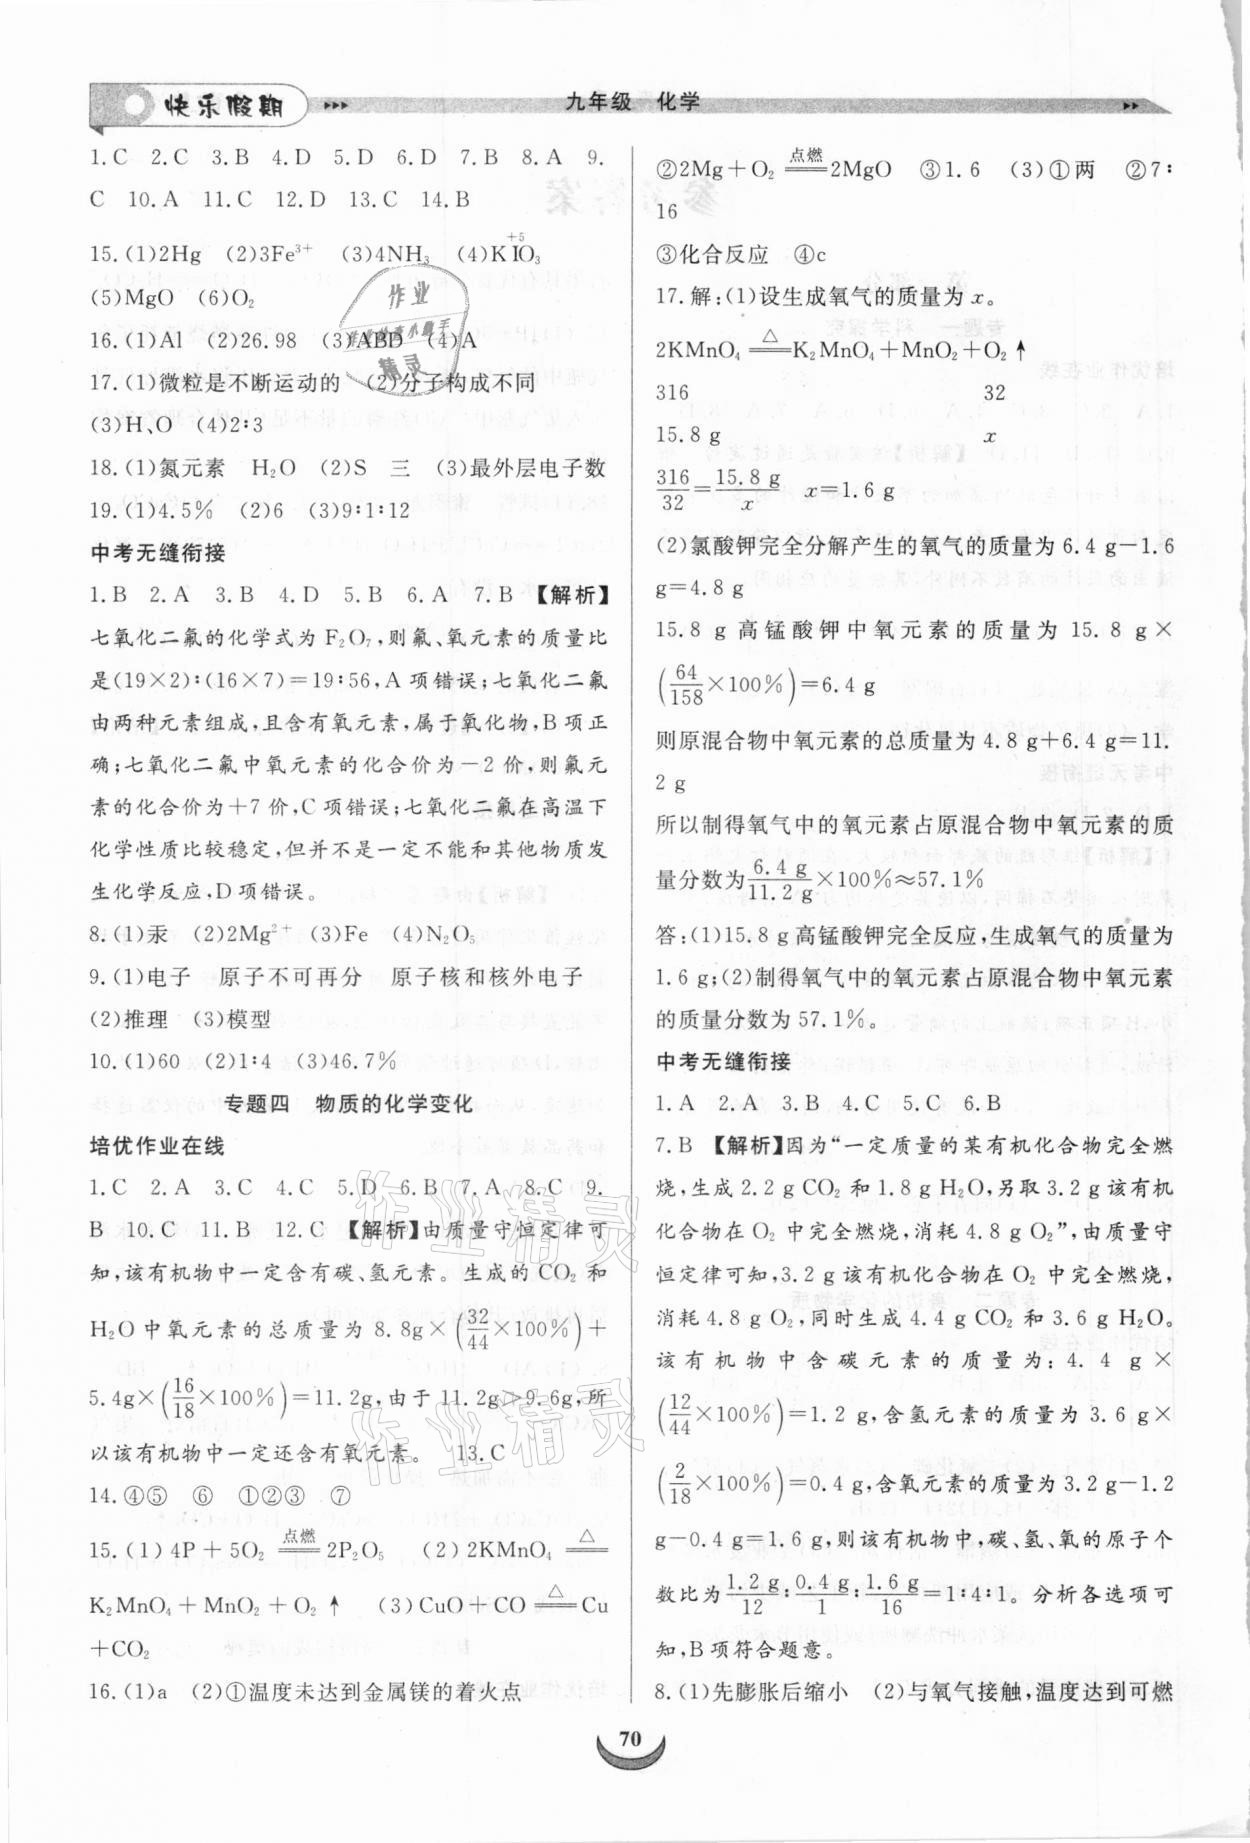 快乐假期
九年级 化学
1.C 2.C 3.B 4.D 5.D 6.D 7.B 8.A 9.
C 10.A 11.C 12.D 13.C 14.B
15.(1)2Hg (2)3Fe³⁺ (3)4NH₃ (4)K$\overset{+5}{I}$O₃
(5)MgO (6)O₂
16.(1)Al (2)26.98 (3)ABD (4)A
17.(1)微粒是不断运动的 (2)分子构成不同
(3)H、O (4)2∶3
18.(1)氮元素 H₂O (2)S 三 (3)最外层电子数
19.(1)4.5% (2)6 (3)9∶1∶12
中考无缝衔接
1.B 2.A 3.B 4.D 5.B 6.A 7.B 【解析】
七氧化二氟的化学式为F₂O₇,则氟、氧元素的质量比
是(19×2)∶(16×7)=19∶56,A项错误;七氧化二氟
由两种元素组成,且含有氧元素,属于氧化物,B项正
确;七氧化二氟中氧元素的化合价为-2价,则氟元
素的化合价为+7价,C项错误;七氧化二氟在高温下
化学性质比较稳定,但并不是一定不能和其他物质发
生化学反应,D项错误。
8.(1)汞 (2)2Mg²⁺ (3)Fe (4)N₂O₅
9.(1)电子 原子不可再分 原子核和核外电子
(2)推理 (3)模型
10.(1)60 (2)1∶4 (3)46.7%
专题四 物质的化学变化
培优作业在线
1.C 2.A 3.C 4.C 5.D 6.B 7.A 8.C 9.
B 10.C 11.B 12.C 【解析】由质量守恒定律可
知,该有机物中一定含有碳、氢元素。生成的CO₂和
H₂O中氧元素的总质量为8.8g×(32/44×100%)+
5.4g×(16/18×100%)=11.2g,由于11.2g>9.6g,所
以该有机物中一定还含有氧元素。 13.C
14.④⑤ ⑥ ①②③ ⑦
15.(1)4P+5O₂ 点燃══ 2P₂O₅ (2)2KMnO₄ △══
K₂MnO₄+MnO₂+O₂↑ (3)CuO+CO △══ Cu
+CO₂
16.(1)a (2)①温度未达到金属镁的着火点
②2Mg+O₂ 点燃══ 2MgO ③1.6 (3)①两 ②7∶
16
③化合反应 ④c
17.解:(1)设生成氧气的质量为x。
2KMnO₄ △══ K₂MnO₄+MnO₂+O₂↑
316 32
15.8 g x
316/32=15.8 g/x x=1.6 g
(2)氯酸钾完全分解产生的氧气的质量为6.4 g-1.6
g=4.8 g
15.8 g高锰酸钾中氧元素的质量为15.8 g×
(64/158×100%)=6.4 g
则原混合物中氧元素的总质量为4.8 g+6.4 g=11.
2 g
所以制得氧气中的氧元素占原混合物中氧元素的质
量分数为6.4 g/11.2 g×100%≈57.1%
答:(1)15.8 g高锰酸钾完全反应,生成氧气的质量为
1.6 g;(2)制得氧气中的氧元素占原混合物中氧元素
的质量分数为57.1%。
中考无缝衔接
1.A 2.A 3.B 4.C 5.C 6.B
7.B 【解析】因为“一定质量的某有机化合物完全燃
烧,生成2.2 g CO₂和1.8 g H₂O,另取3.2 g该有机
化合物在O₂中完全燃烧,消耗4.8 g O₂”,由质量守
恒定律可知,3.2 g该有机化合物在O₂中完全燃烧,
消耗4.8 g O₂,同时生成4.4 g CO₂和3.6 g H₂O。
该有机物中含碳元素的质量为:4.4 g×
(12/44×100%)=1.2 g,含氢元素的质量为3.6 g×
(2/18×100%)=0.4 g,含氧元素的质量为3.2 g-1.2
g-0.4 g=1.6 g,则该有机物中,碳、氢、氧的原子个
数比为1.2 g/12∶0.4 g/1∶1.6 g/16=1∶4∶1。分析各选项可
知,B项符合题意。
8.(1)先膨胀后缩小 (2)与氧气接触,温度达到可燃
70
作业精灵
作业精灵